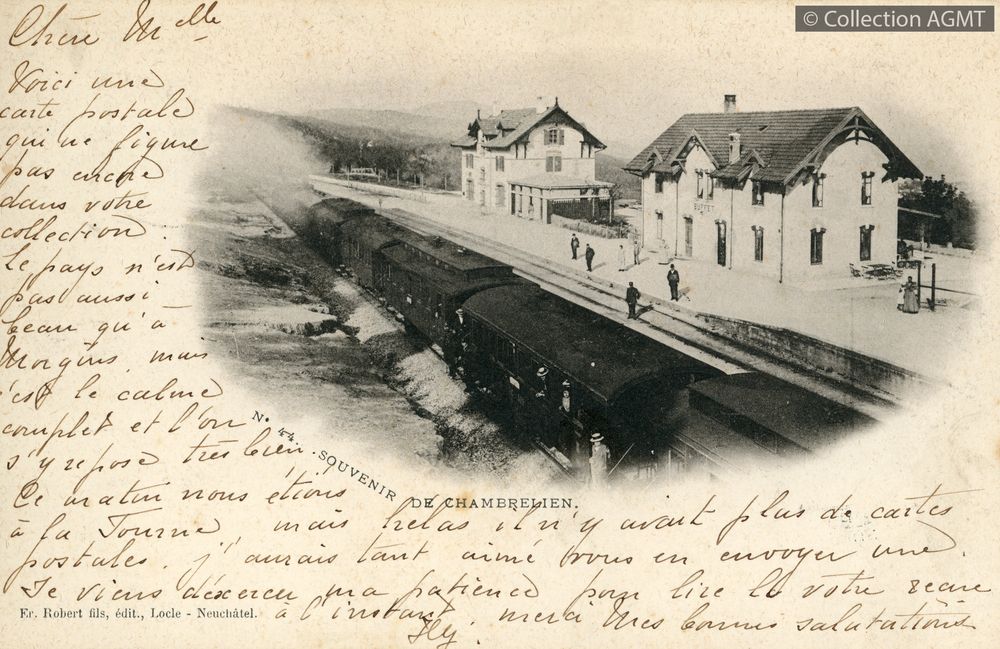 © Collection AGMT
Chère Melle
Voici une
carte postale
qui ne figure
pas encore
dans votre
collection.
Le pays n'est
pas aussi
beau qu'à
Morgins, mais
c'est le calme
complet et l'on
s'y repose très bien.
BUFFET
No 44. SOUVENIR DE CHAMBRELIEN.
Ce matin nous étions
à la Tourne, mais helas il n'y avait plus de cartes
postales, j'aurais tant aimé vous en envoyer une.
Je viens d'exercer ma patience pour lire la votre
à l'instant, merci Mes bonnes salutations
Fr. Robert fils, édit., Locle - Neuchâtel.